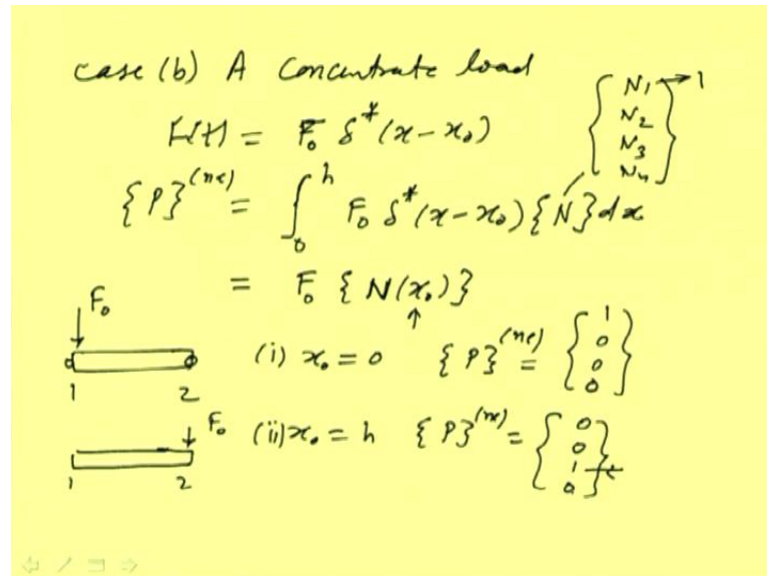 case (b) A Concentrate load
F(t) = F₀ δ*(x-x₀)
{ N₁ → 1
N₂
N₃
N₄ }
{P}⁽ⁿᵉ⁾ = ∫₀ʰ F₀ δ*(x-x₀) {N} dx
= F₀ {N(x₀)}
↑
F₀
1 2
(i) x₀ = 0 {P}⁽ⁿᵉ⁾ = { 1 0 0 0 }
F₀
1 2
(ii) x₀ = h {P}⁽ⁿᵉ⁾ = { 0 0 1 0 }